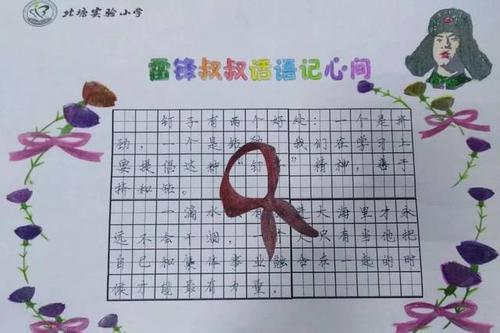 北塘实验小学
雷锋叔叔话语记心间
钉子有两个好处：一个是挤
劲，一个是钻 我们在学习上
要提倡这种“钉 ”精神，善于
挤和钻。
一滴水 有 大海里才永
远不会干涸， 人只有当他把
自己和集体事业融合在一起的时
候才能最有力量。